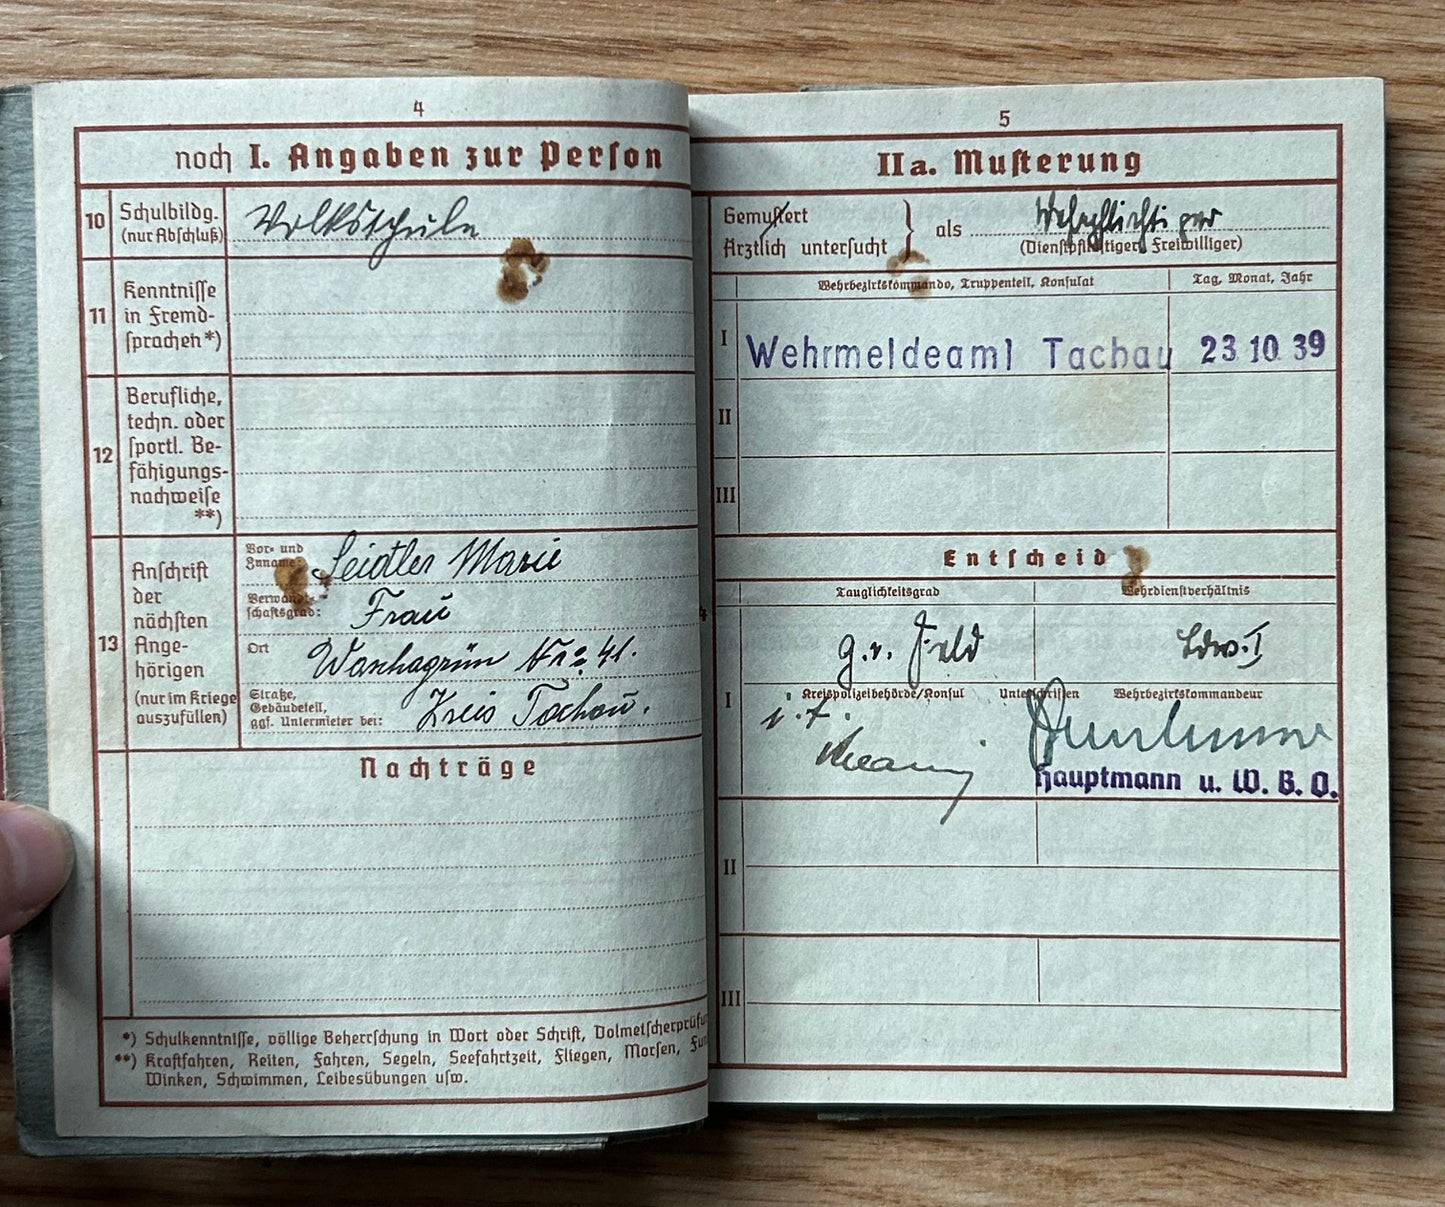 4
noch I. Angaben zur Person
10
Schulbildg.
(nur Abschluß)
Volksschule
11
Kenntnisse
in Fremd-
sprachen *)
12
Berufliche,
techn. oder
sportl. Be-
fähigungs-
nachweise
**)
13
Anschrift
der
nächsten
Ange-
hörigen
(nur im Kriege
auszufüllen)
Vor- und
Zuname:
Seidler Marie
Verwandt-
schaftsgrad:
Frau
Ort
Nr. 41.
Straße,
Gebäudeteil,
ggf. Untermieter bei:
Kreis Tachau.
Nachträge
*) Schulkenntnisse, völlige Beherrschung in Wort oder Schrift, Dolmetscherprüfun
**) Kraftfahren, Reiten, Fahren, Segeln, Seefahrtzeit, Fliegen, Morsen, Fun
Winken, Schwimmen, Leibesübungen usw.
5
IIa. Musterung
Gemustert
Ärztlich untersucht
als
Wehrpflichtiger
(Dienstpflichtiger, Freiwilliger)
Wehrbezirkskommando, Truppenteil, Konsulat
Tag, Monat, Jahr
I
Wehrmeldeamt Tachau 23 10 39
II
III
Entscheid
Tauglichkeitsgrad
Wehrdienstverhältnis
g.v. Feld
Ldw. I
I
Kreispolizeibehörde/Konsul
Unterschriften
Wehrbezirkskommandeur
Hauptmann u. W. B. O.
II
III